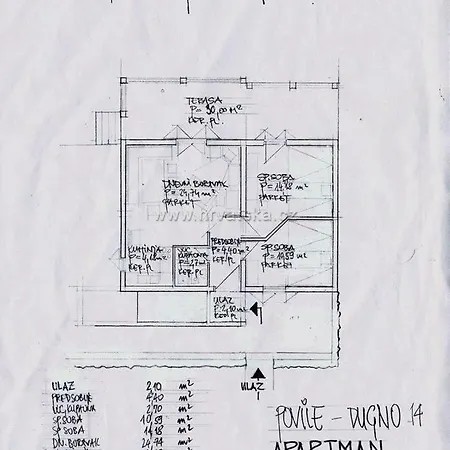 TERASA
P= 30,00 m²
KER.PL.
DNEVNI BORAVAK
P= 24,74 m²
PARKET
SP.SOBA
P= 11,18 m²
PARKET
www.hrvatska.cz
KUHINJA
KER.PL
KUPAONA
KER.PL
PREDSOBLJE
P= 4,40 m²
KER.PL.
SP.SOBA
P= 10,59 m²
PARKET
ULAZ
P= 2,10 m²
KER.PL
ULAZ
ULAZ 2,10 m²
PREDSOBLJE 4,40 m²
UC, KUPAONA 2,70 m²
SP.SOBA 10,59 m²
SP.SOBA 11,18 m²
DN. BORAVAK 24,74 m²
POVILE - DUGNO 14
APARTMAN